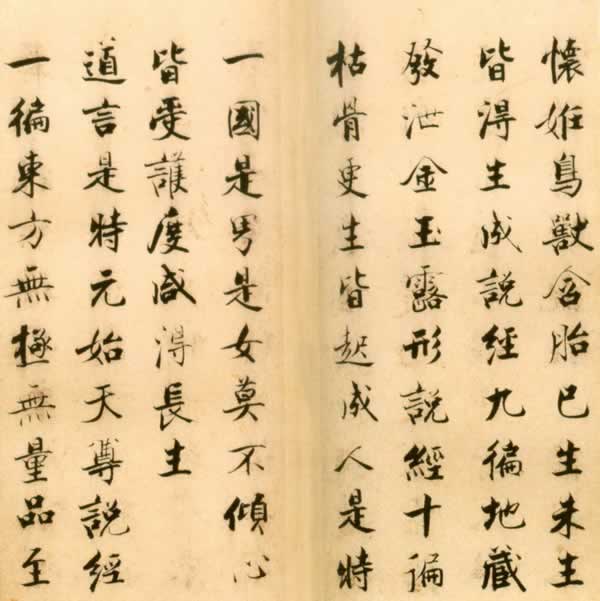 懷姙鳥獸含胎已生未生
皆淂生成說經九徧地藏
發泄金玉露形說經十徧
枯骨更生皆起成人是時
一國是男是女莫不傾心
皆受護度咸淂長生
道言是時元始天尊說經
一徧東方無極無量品至